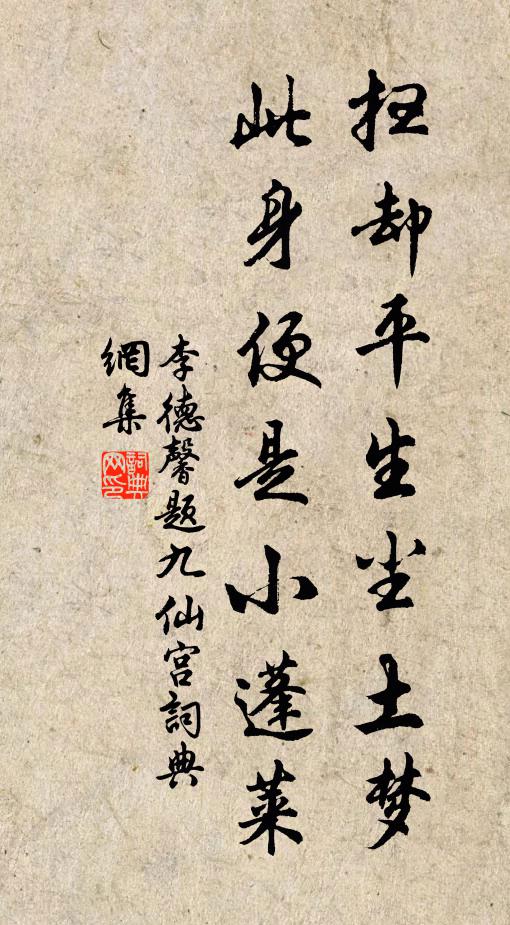 枉却平生尘土梦
此身便是小蓬莱
李德馨题九仙宫詞典
網集
詞典
网印